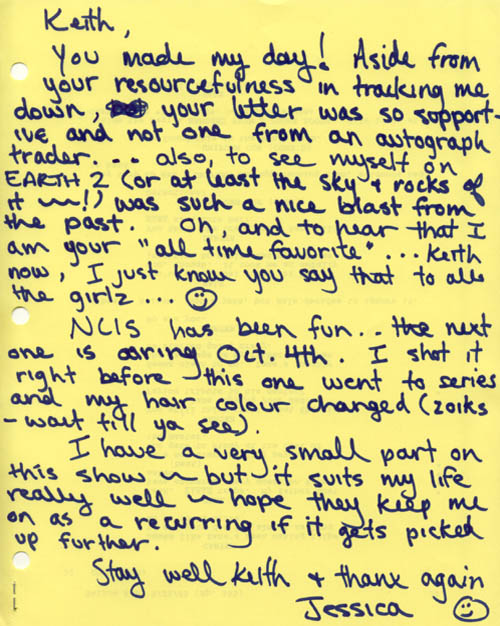 Keith,
You made my day! Aside from
your resourcefulness in tracking me
down, your letter was so support-
ive and not one from an autograph
trader... also, to see myself on
EARTH 2 (or at least the sky + rocks of
it ~!) was such a nice blast from
the past. Oh, and to hear that I
am your "all time favorite"... Keith
now, I just know you say that to all
the girlz... ☺
NCIS has been fun.. the next
one is airing Oct. 4th. I shot it
right before this one went to series
and my hair colour changed (zoiks
- wait till ya see).
I have a very small part on
this show ~ but it suits my life
really well ~ hope they keep me
on as a recurring if it gets picked
up further.
Stay well Keith + thanx again
Jessica ☺